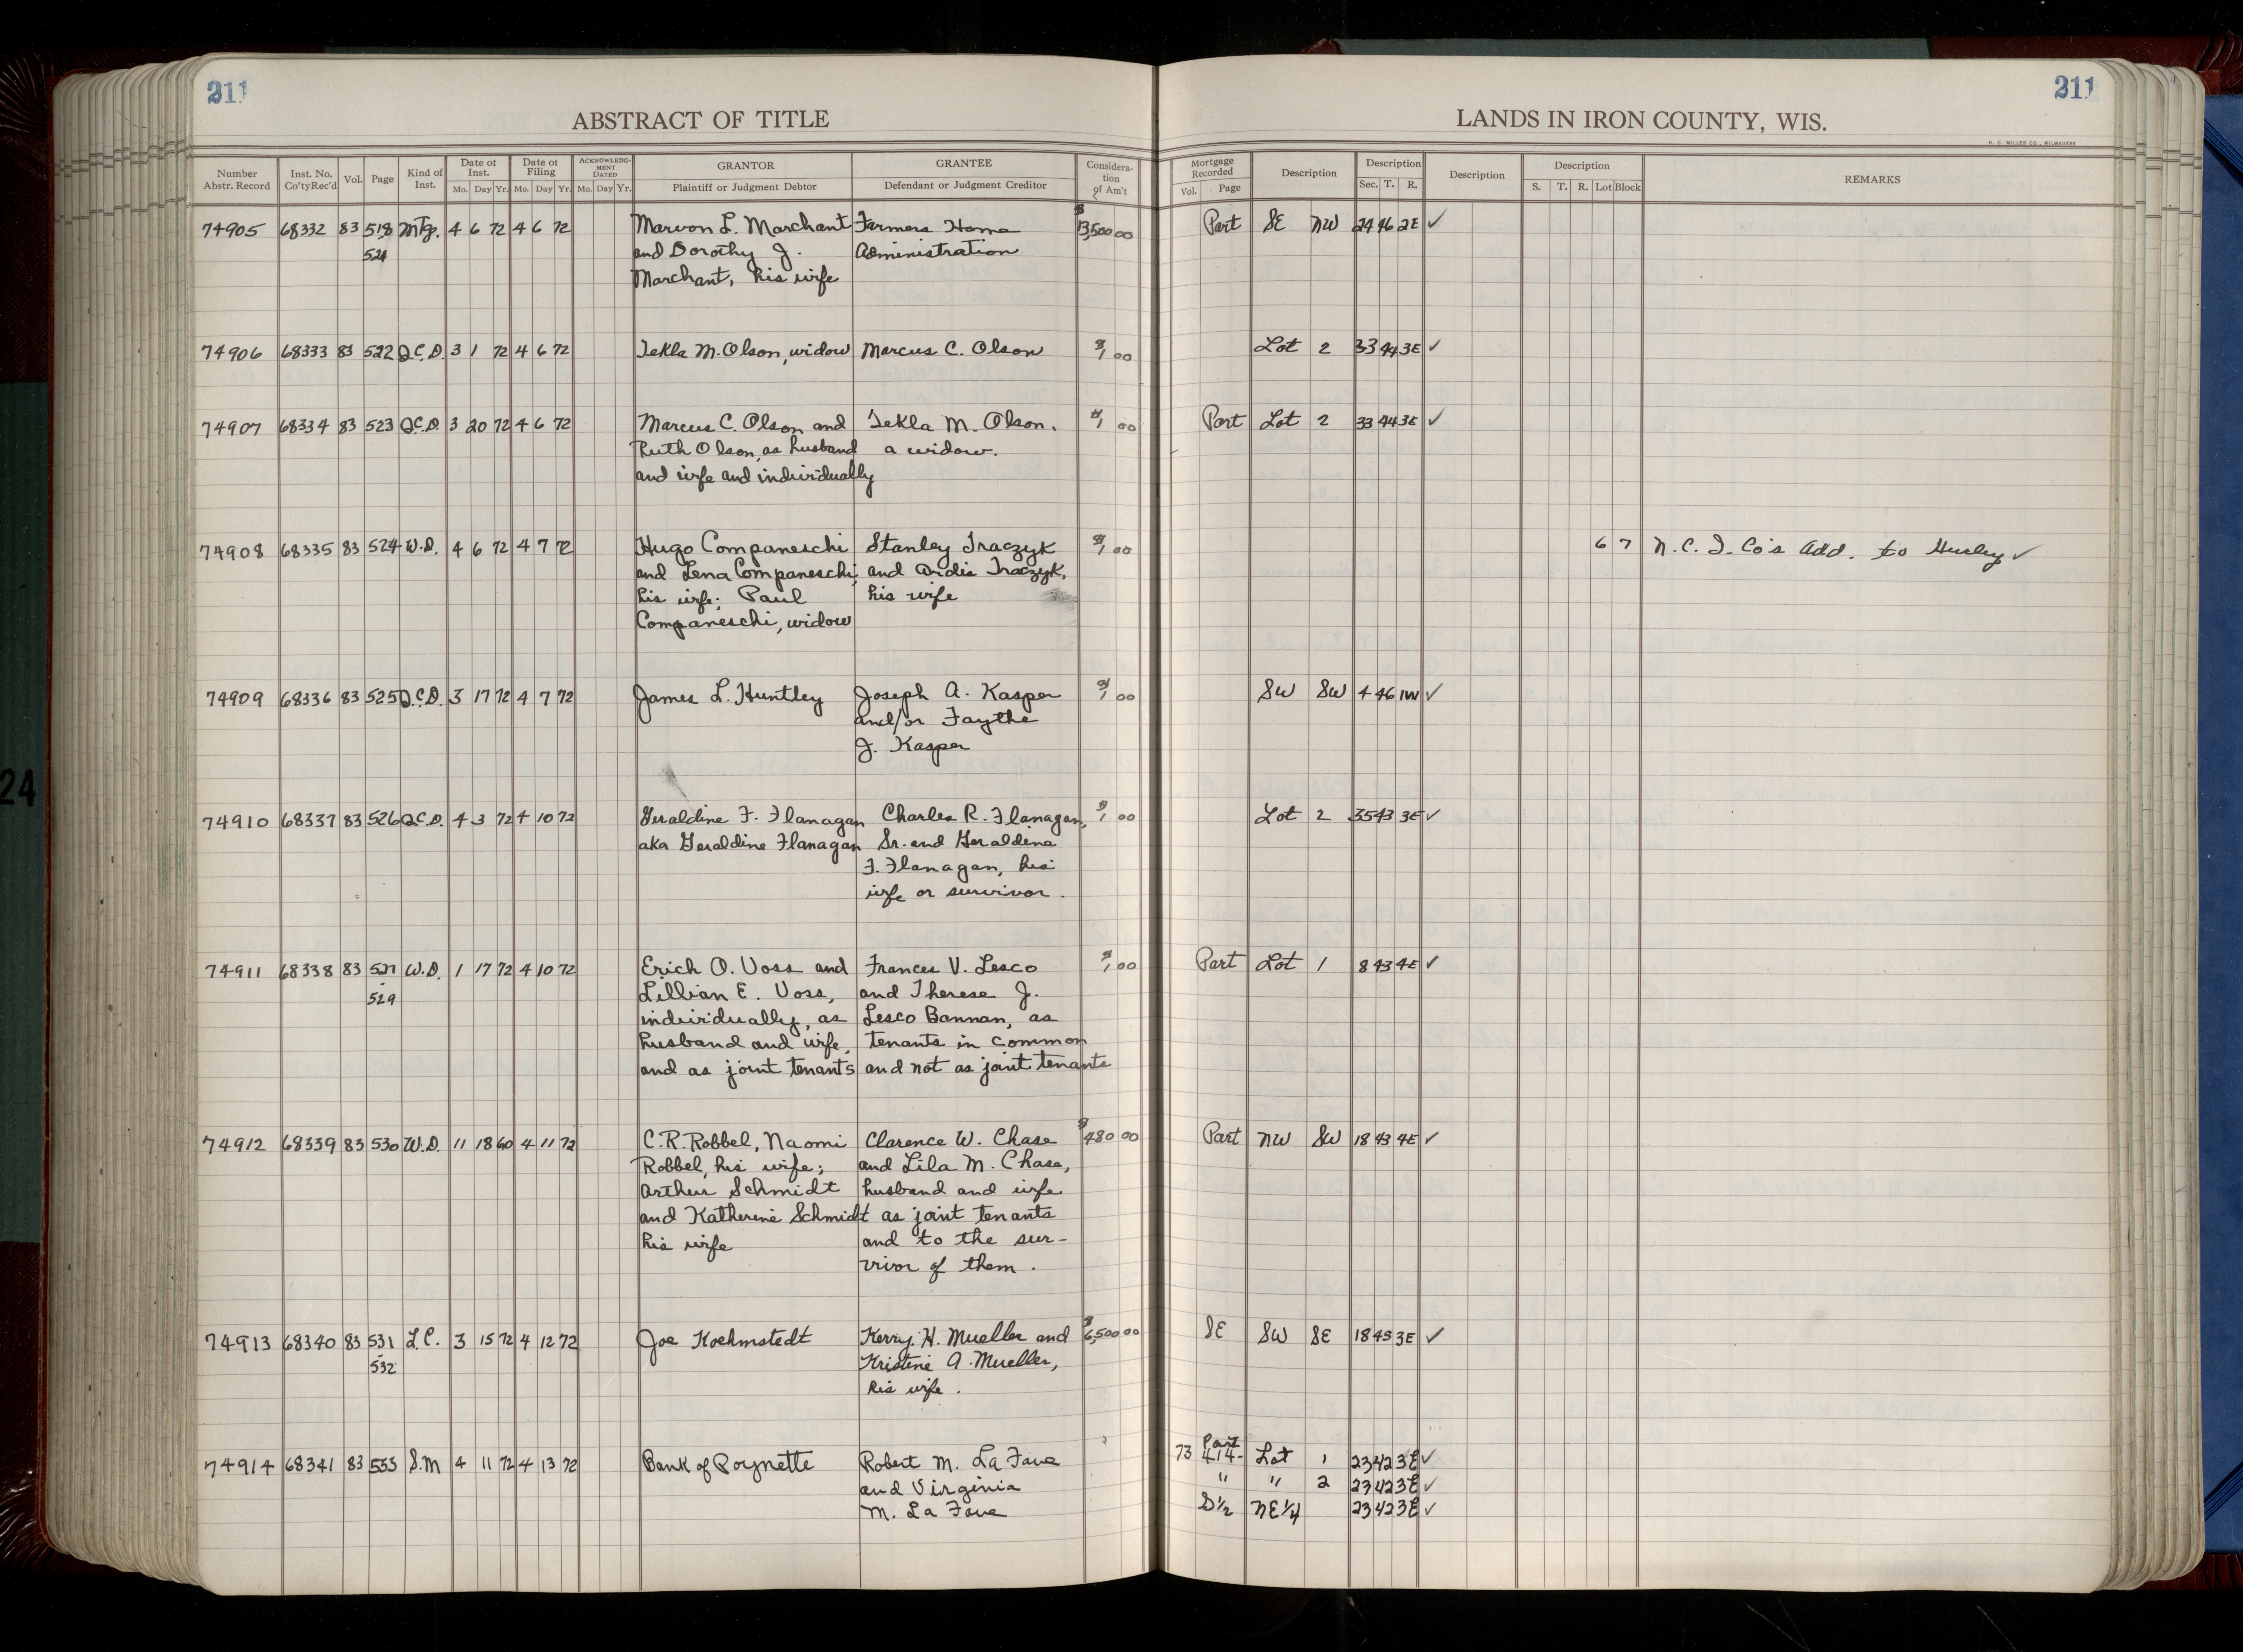 211
211
ABSTRACT OF TITLE
LANDS IN IRON COUNTY, WIS.
H. C. MILLER CO., MILWAUKEE
Number Abstr. Record | Inst. No. Co'ty Rec'd | Vol. | Page | Kind of Inst. | Date of Inst. Mo. Day Yr. | Date of Filing Mo. Day Yr. | ACKNOWLEDGMENT DATED Mo. Day Yr. | GRANTOR Plaintiff or Judgment Debtor | GRANTEE Defendant or Judgment Creditor | Consideration of Am't | Mortgage Recorded Vol. Page | Description | Description Sec. T. R. | Description | Description S. T. R. Lot Block | REMARKS
74905 68332 83 518 Mtg. 4 6 72 4 6 72 Marvon L. Marchant Farmers Home $13,500 00 Part SE NW 24 46 2E ✓
521 and Dorothy J. Administration
Marchant, his wife
74906 68333 83 522 Q.C.D. 3 1 72 4 6 72 Tekla M. Olson, widow Marcus C. Olson $1 00 Lot 2 33 44 3E ✓
74907 68334 83 523 Q.C.D. 3 20 72 4 6 72 Marcus C. Olson and Tekla M. Olson, $1 00 Part Lot 2 33 44 3E ✓
Ruth Olson, as husband a widow.
and wife and individually
74908 68335 83 524 W.D. 4 6 72 4 7 72 Hugo Companeschi Stanley Traczyk $1 00 6 7 N.C.I. Co's Add. to Hurley ✓
and Lena Companeschi, and Ardis Traczyk,
his wife; Paul his wife
Companeschi, widow
74909 68336 83 525 Q.C.D. 3 17 72 4 7 72 James L. Huntley Joseph A. Kasper $1 00 SW SW 4 46 1W ✓
and/or Faythe
J. Kasper
74910 68337 83 526 Q.C.D. 4 3 72 4 10 72 Geraldine F. Flanagan Charles R. Flanagan, $1 00 Lot 2 35 43 3E ✓
aka Geraldine Flanagan Sr. and Geraldine
F. Flanagan, his
wife or survivor.
74911 68338 83 527 W.D. 1 17 72 4 10 72 Erich O. Voss and Frances V. Lesco $1 00 Part Lot 1 8 43 4E ✓
- 529 Lillian E. Voss, and Therese J.
individually, as Lesco Bannan, as
husband and wife, tenants in common
and as joint tenants and not as joint tenants
74912 68339 83 530 W.D. 11 18 60 4 11 72 C.R. Robbel, Naomi Clarence W. Chase $480 00 Part NW SW 18 43 4E ✓
Robbel, his wife; and Lila M. Chase,
Arthur Schmidt husband and wife
and Katherine Schmidt as joint tenants
his wife and to the sur-
vivor of them.
74913 68340 83 531 L.C. 3 15 72 4 12 72 Joe Koehmstedt Kerry H. Mueller and $6,500 00 SE SW SE 18 45 3E ✓
- 532 Kristine A. Mueller,
his wife.
74914 68341 83 533 S.M 4 11 72 4 13 72 Bank of Poynette Robert M. La Fave 73 Part 414- Lot 1 23 42 3E ✓
and Virginia " " 2 23 42 3E ✓
M. La Fave S½ NE¼ 23 42 3E ✓
24